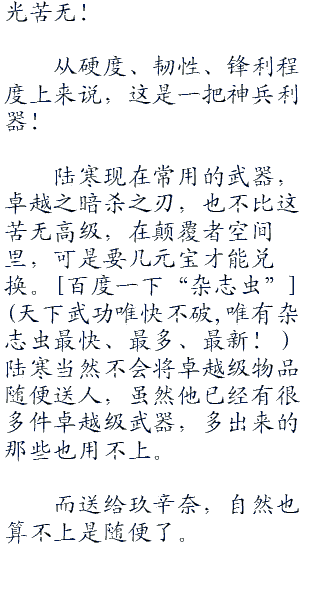 光苦无！
从硬度、韧性、锋利程
度上来说，这是一把神兵利
器！
陆寒现在常用的武器，
卓越之暗杀之刃，也不比这
苦无高级，在颠覆者空间
里，可是要几元宝才能兑
换。[百度一下“杂志虫”]
(天下武功唯快不破,唯有杂
志虫最快、最多、最新！)
陆寒当然不会将卓越级物品
随便送人，虽然他已经有很
多件卓越级武器，多出来的
那些也用不上。
而送给玖辛奈，自然也
算不上是随便了。